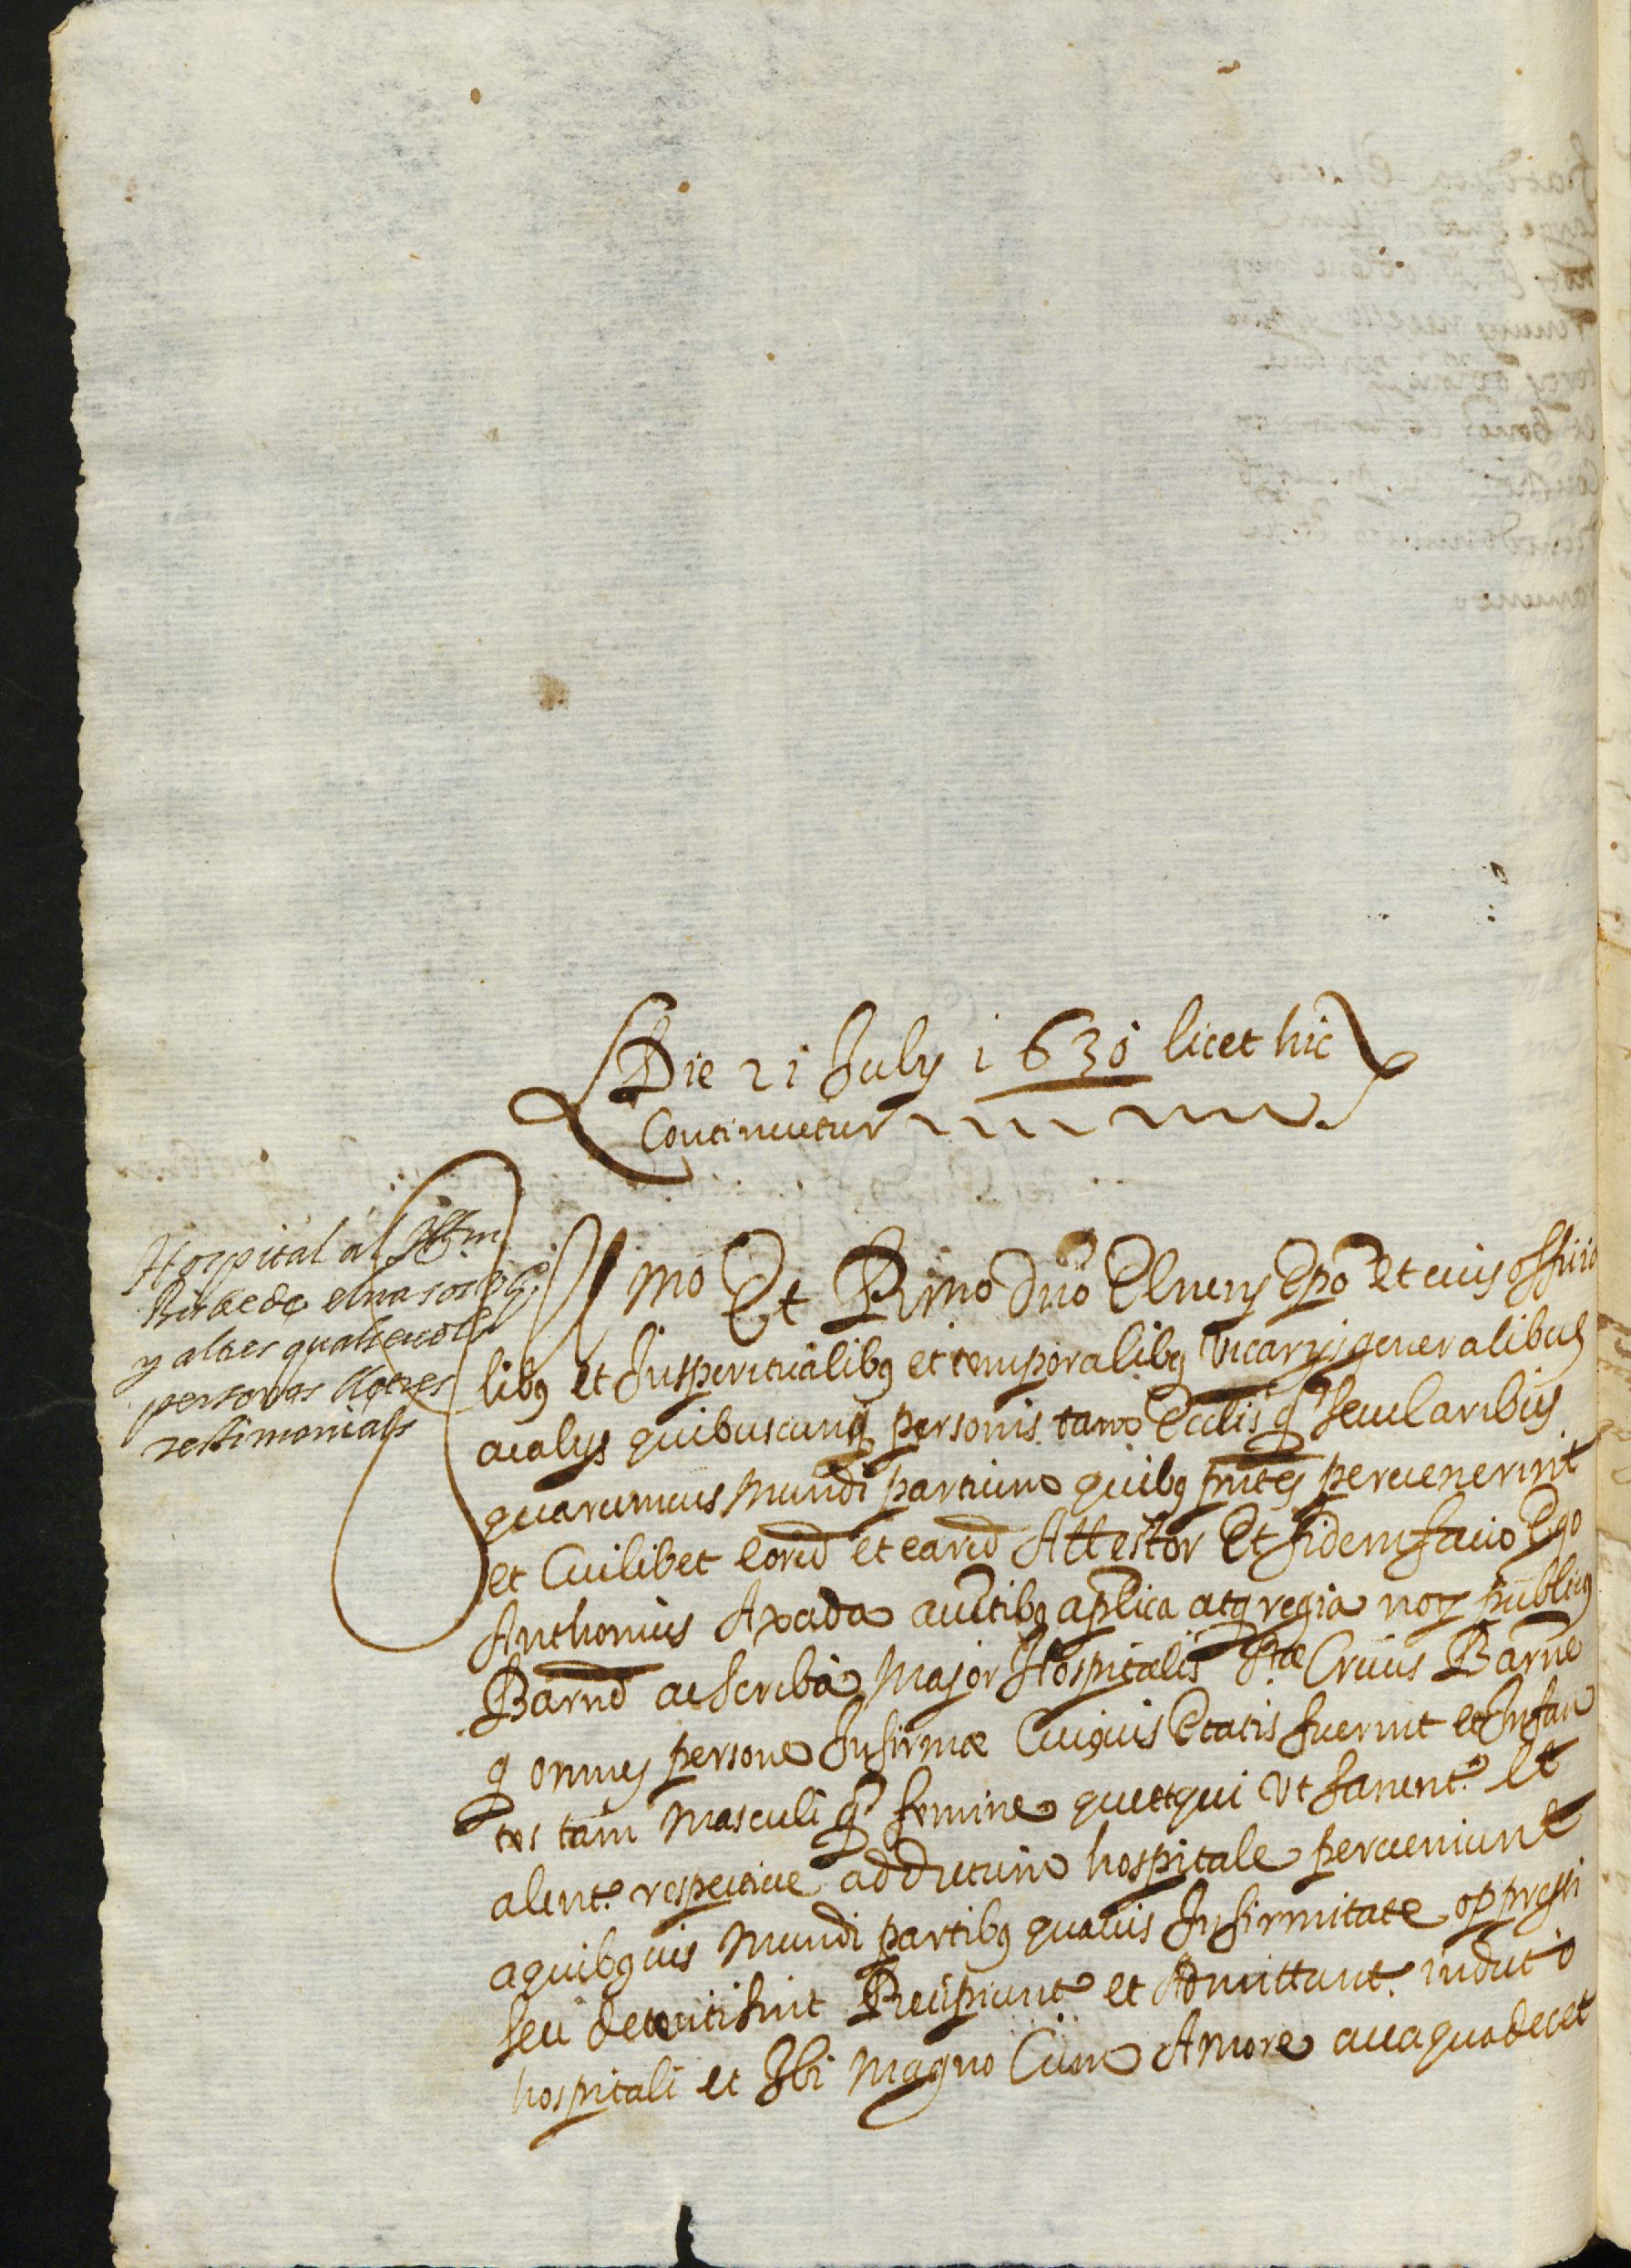 Die 21 July 1630 licet hic
Continuetur
Hospital al Illm
Bisbe de elna sos offi.
y altres qualsevols
personas lletres
testimonials
Illmo Et Rmo Dno Elneñ Epo Et eius officia
libꝯ et In speritualibꝯ et temporalibꝯ vicarijs generalibus
ac alijs quibuscunqꝫ personis tam Ecclis q̃ secularibus
quarumvis Mundi partium quibꝯ pñtes pervenerint
et Cuilibet eord et eard Attestor Et fidem facio Ego
Anthonius Axada auctibꝯ aplica atq regia not publicus
Barnẽ ac scriba Major Hospitalis Stæ Crucis Barnẽ
q omnes persone Infirmæ Cuiqvis Etatis fuerint et Infan
tes tam Masculi q̃ femine queitqui Vt sanent.r et
alent.r respective ad dictum hospitale perveniunt
a quibꝯvis Mundi partibꝯ quavis Infirmitate oppressi
seu detenti sint Recipiunt.r et Admittunt.r in dict o
hospitali et Ibi Magno Cum Amore ac ea qua decet